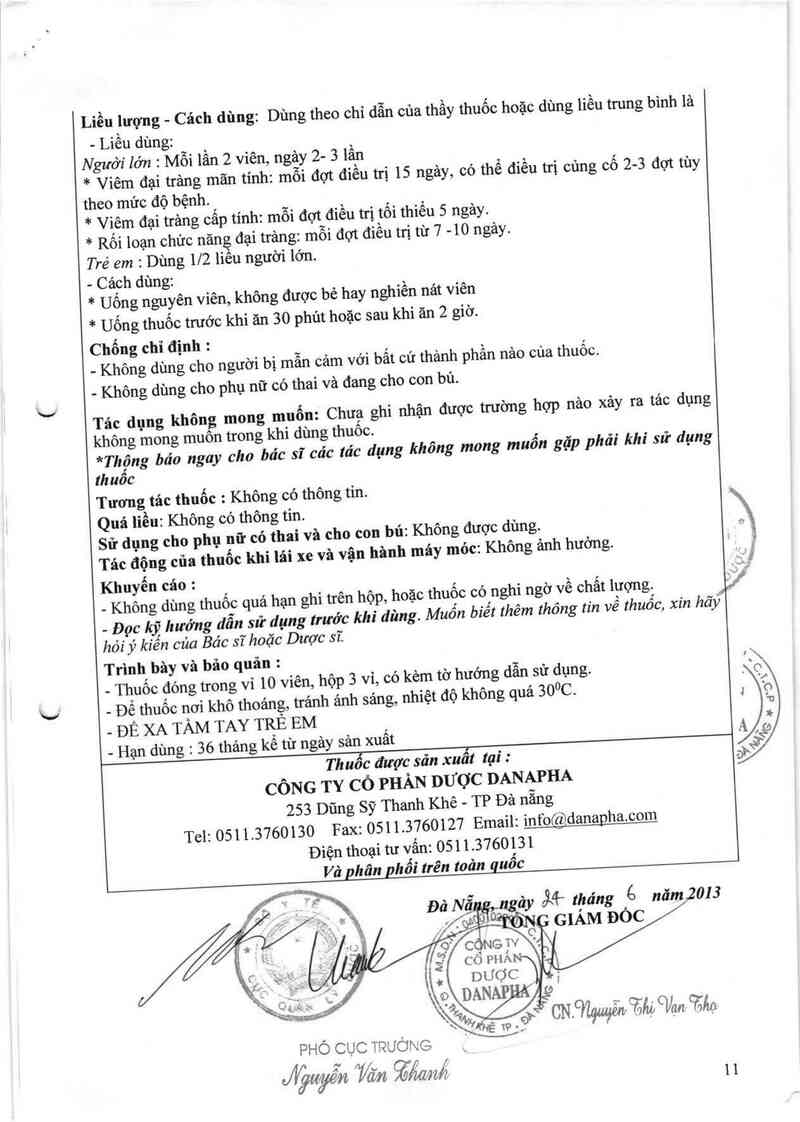 Liều lượng - Cách dùng: Dùng theo chỉ dẫn của thầy thuốc hoặc dùng liều trung bình là
- Liều dùng:
Người lớn : Mỗi lần 2 viên, ngày 2- 3 lần
* Viêm đại tràng mãn tính: mỗi đợt điều trị 15 ngày, có thể điều trị củng cố 2-3 đợt tùy
theo mức độ bệnh.
* Viêm đại tràng cấp tính: mỗi đợt điều trị tối thiểu 5 ngày.
* Rối loạn chức năng đại tràng: mỗi đợt điều trị từ 7 -10 ngày.
Trẻ em : Dùng 1/2 liều người lớn.
- Cách dùng:
* Uống nguyên viên, không được bẻ hay nghiền nát viên
* Uống thuốc trước khi ăn 30 phút hoặc sau khi ăn 2 giờ.
Chống chỉ định :
- Không dùng cho người bị mẫn cảm với bất cứ thành phần nào của thuốc.
- Không dùng cho phụ nữ có thai và đang cho con bú.
Tác dụng không mong muốn: Chưa ghi nhận được trường hợp nào xảy ra tác dụng
không mong muốn trong khi dùng thuốc.
*Thông báo ngay cho bác sĩ các tác dụng không mong muốn gặp phải khi sử dụng
thuốc
Tương tác thuốc : Không có thông tin.
Quá liều: Không có thông tin.
Sử dụng cho phụ nữ có thai và cho con bú: Không được dùng.
Tác động của thuốc khi lái xe và vận hành máy móc: Không ảnh hưởng.
Khuyến cáo :
- Không dùng thuốc quá hạn ghi trên hộp, hoặc thuốc có nghi ngờ về chất lượng.
- Đọc kỹ hướng dẫn sử dụng trước khi dùng. Muốn biết thêm thông tin về thuốc, xin hãy
hỏi ý kiến của Bác sĩ hoặc Dược sĩ.
Trình bày và bảo quản :
- Thuốc đóng trong vỉ 10 viên, hộp 3 vỉ, có kèm tờ hướng dẫn sử dụng.
- Để thuốc nơi khô thoáng, tránh ánh sáng, nhiệt độ không quá 30⁰C.
- ĐỂ XA TẦM TAY TRẺ EM
- Hạn dùng : 36 tháng kể từ ngày sản xuất
Thuốc được sản xuất tại :
CÔNG TY CỔ PHẦN DƯỢC DANAPHA
253 Dũng Sỹ Thanh Khê - TP Đà nẵng
Tel: 0511.3760130 Fax: 0511.3760127 Email: info@danapha.com
Điện thoại tư vấn: 0511.3760131
Và phân phối trên toàn quốc
Đà Nẵng, ngày 24 tháng 6 năm 2013
TỔNG GIÁM ĐỐC
CÔNG TY
CỔ PHẦN
DƯỢC
DANAPHA
Q.THANH KHÊ TP. ĐÀ NẴNG
CN. Nguyễn Thị Vạn Thọ
BỘ Y TẾ
CỤC QUẢN LÝ DƯỢC
PHÓ CỤC TRƯỞNG
Nguyễn Văn Thanh
11